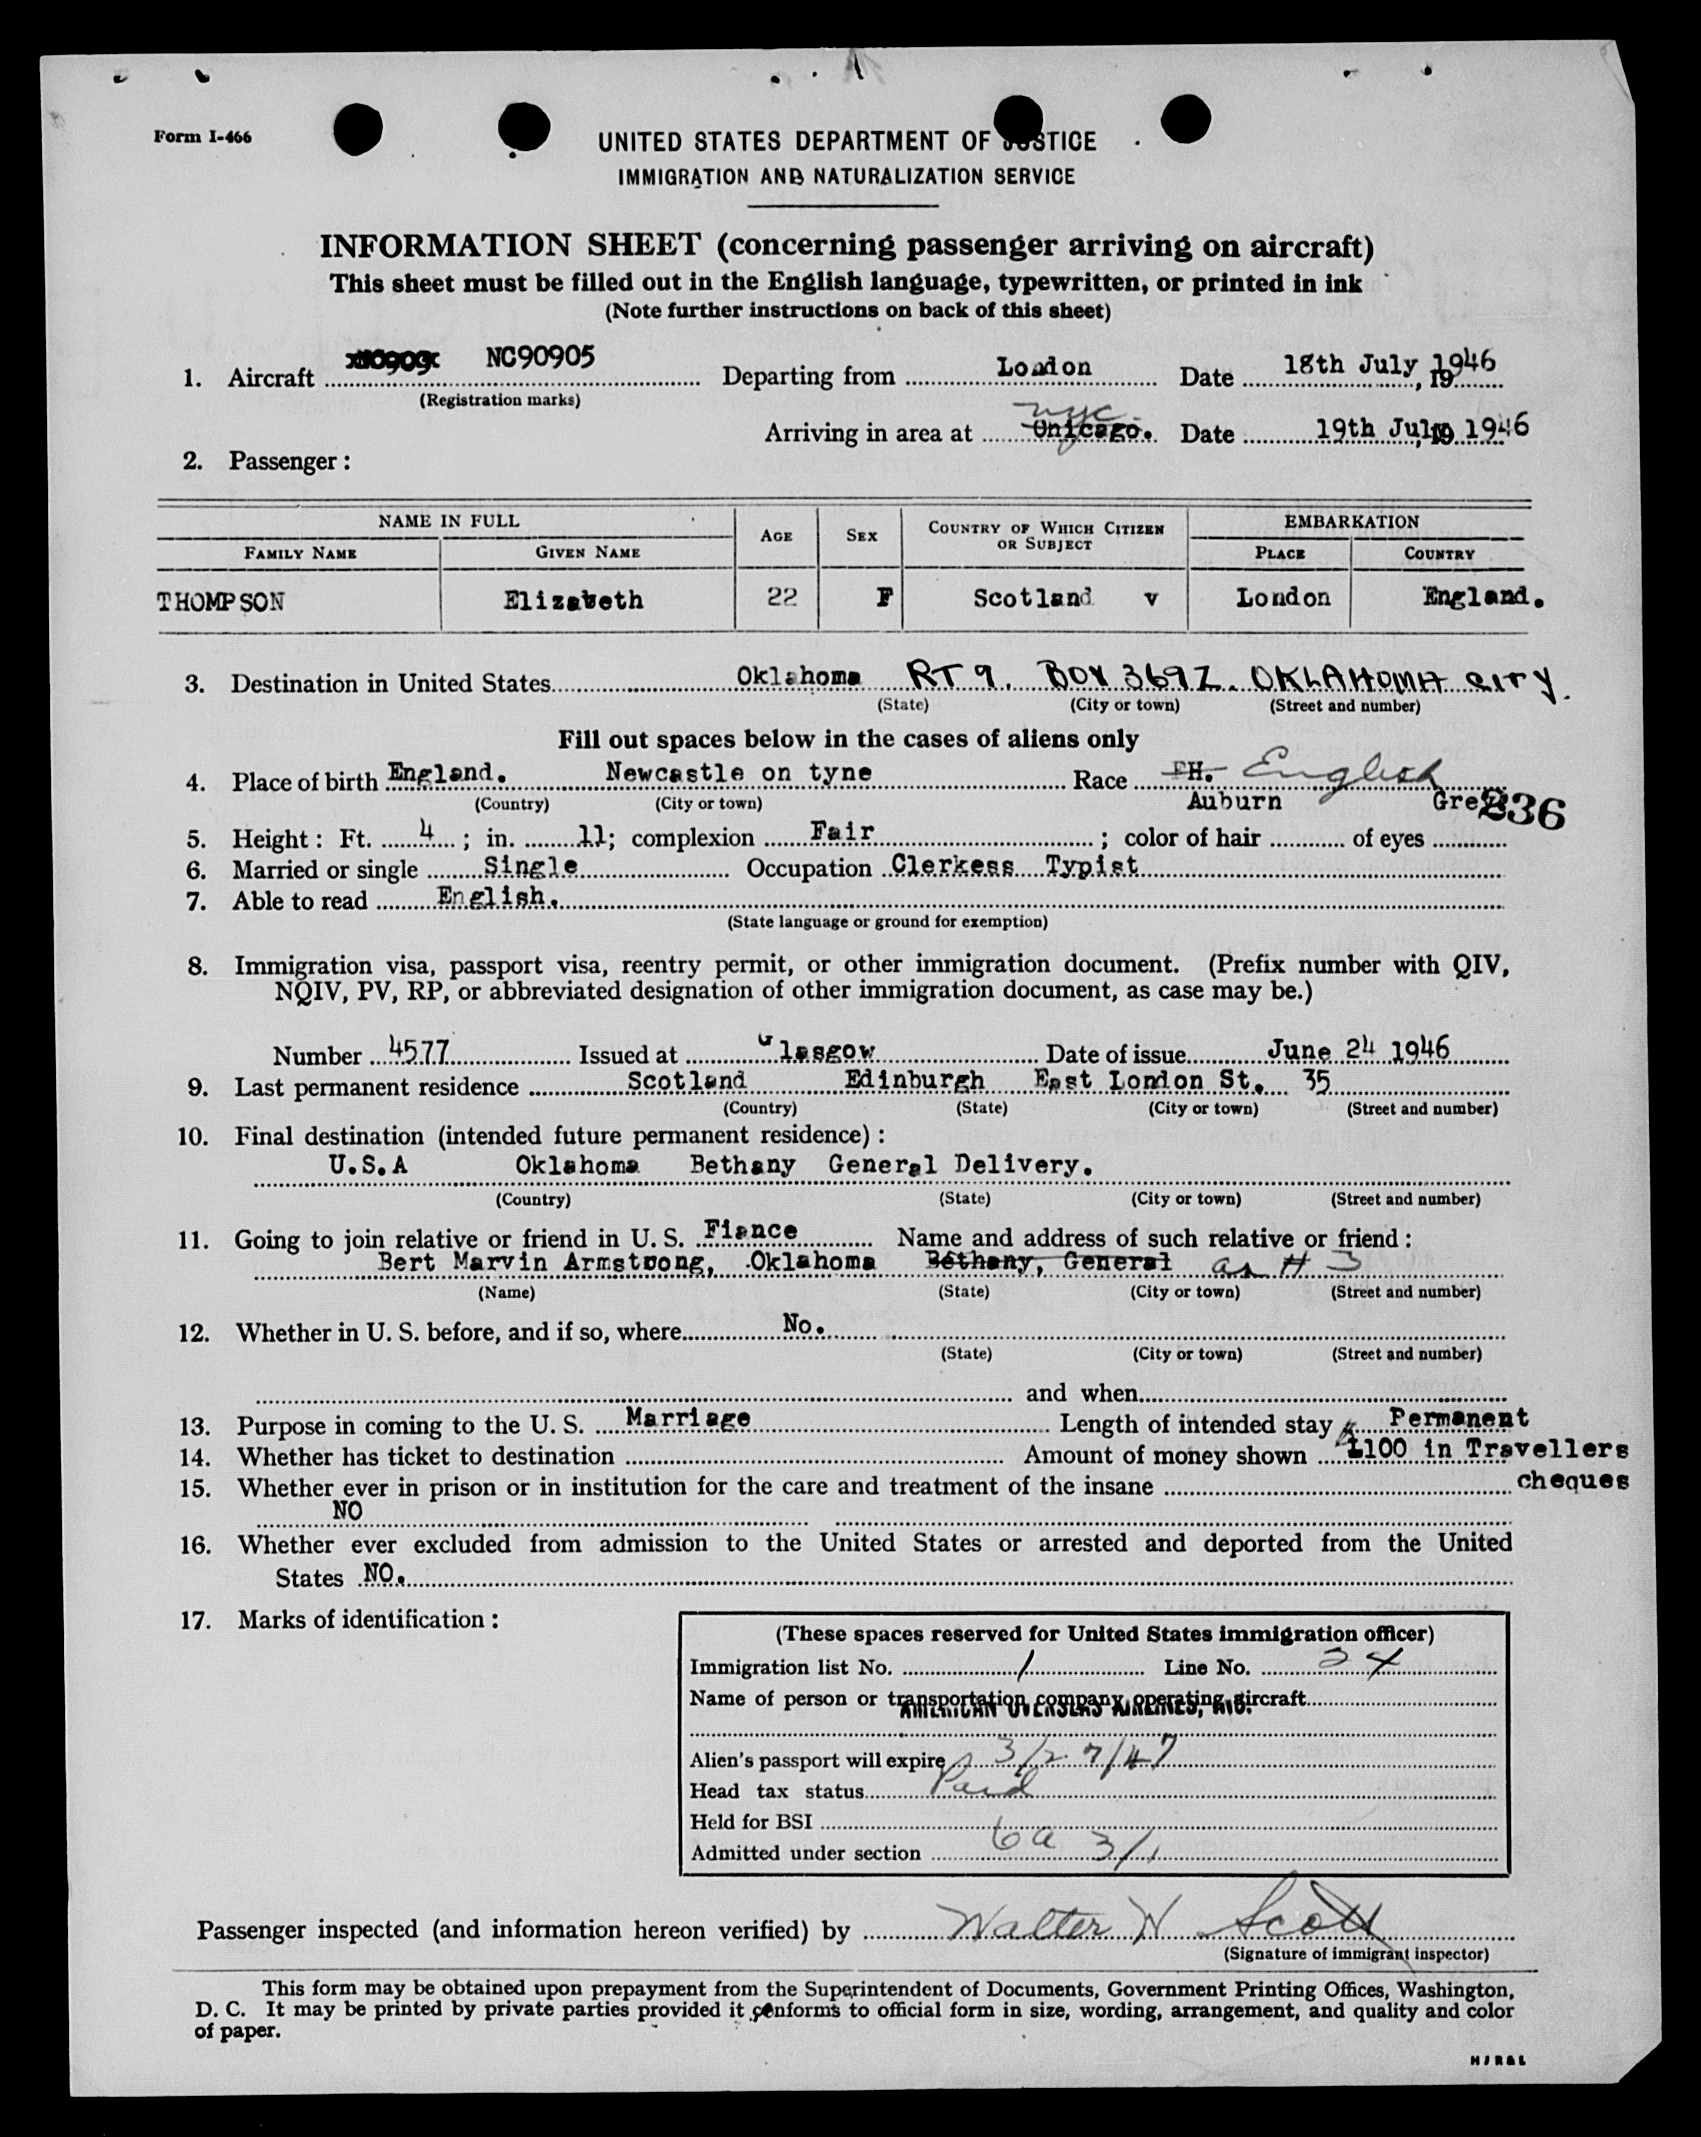 Form I-466
UNITED STATES DEPARTMENT OF JUSTICE
IMMIGRATION AND NATURALIZATION SERVICE
INFORMATION SHEET (concerning passenger arriving on aircraft)
This sheet must be filled out in the English language, typewritten, or printed in ink
(Note further instructions on back of this sheet)
1. Aircraft NC90905 Departing from London Date 18th July, 1946
(Registration marks)
nyc
Arriving in area at Chicago. Date 19th July, 19 1946
2. Passenger:
NAME IN FULL AGE SEX COUNTRY OF WHICH CITIZEN OR SUBJECT EMBARKATION
FAMILY NAME GIVEN NAME PLACE COUNTRY
THOMPSON Elizabeth 22 F Scotland v London England.
3. Destination in United States Oklahoma RT 9. BOX 369Z. OKLAHOMA CITY.
(State) (City or town) (Street and number)
Fill out spaces below in the cases of aliens only
4. Place of birth England. Newcastle on tyne Race English
(Country) (City or town) Auburn Grey 236
5. Height: Ft. 4; in. 11; complexion Fair; color of hair of eyes
6. Married or single Single Occupation Clerkess Typist
7. Able to read English.
(State language or ground for exemption)
8. Immigration visa, passport visa, reentry permit, or other immigration document. (Prefix number with QIV,
NQIV, PV, RP, or abbreviated designation of other immigration document, as case may be.)
Number 4577 Issued at Glasgow Date of issue June 24 1946
9. Last permanent residence Scotland Edinburgh East London St. 35
(Country) (State) (City or town) (Street and number)
10. Final destination (intended future permanent residence):
U.S.A Oklahoma Bethany General Delivery.
(Country) (State) (City or town) (Street and number)
11. Going to join relative or friend in U. S. Fiance Name and address of such relative or friend:
Bert Marvin Armstrong, Oklahoma Bethany, General as # 3
(Name) (State) (City or town) (Street and number)
12. Whether in U. S. before, and if so, where No.
(State) (City or town) (Street and number)
and when
13. Purpose in coming to the U. S. Marriage Length of intended stay Permanent
14. Whether has ticket to destination Amount of money shown £100 in Travellers
15. Whether ever in prison or in institution for the care and treatment of the insane cheques
NO
16. Whether ever excluded from admission to the United States or arrested and deported from the United
States NO.
17. Marks of identification:
(These spaces reserved for United States immigration officer)
Immigration list No. 1 Line No. 24
Name of person or transportation company operating aircraft
AMERICAN OVERSEAS AIRLINES, INC.
Alien's passport will expire 3/27/47
Head tax status Paid
Held for BSI
Admitted under section 6a 3/1
Passenger inspected (and information hereon verified) by Walter W Scott
(Signature of immigrant inspector)
This form may be obtained upon prepayment from the Superintendent of Documents, Government Printing Offices, Washington,
D. C. It may be printed by private parties provided it conforms to official form in size, wording, arrangement, and quality and color
of paper.